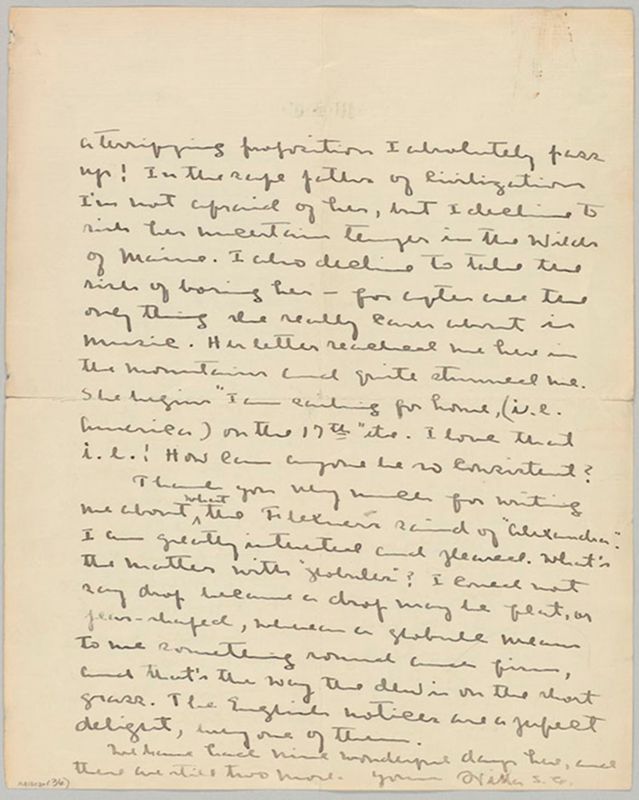 a terrifying proposition I absolutely pass
up! In the safe paths of Civilization
I'm not afraid of her, but I decline to
risk her uncertain temper in the Wilds
of Maine. I also decline to take the
risk of boring her – for after all the
only thing she really cares about is
music. Her letter reached me here in
the mountains and quite stunned me.
She begins "I am sailing for home, (i.e.
America) on the 17th" etc. I love that
i.e.! How can anyone be so consistent?
Thank you very much for writing
me about what the Flexners said of "Alexandra".
I am greatly interested and pleased. What's
the matter with "globules"? I could not
say drop because a drop may be flat, or
pear-shaped, whereas a globule means
to me something round and firm,
and that's the way the dew is on the short
grass. The English notices are a perfect
delight, every one of them.
We have had nine wonderful days here, and
there are still two more. Yours W. S. C.